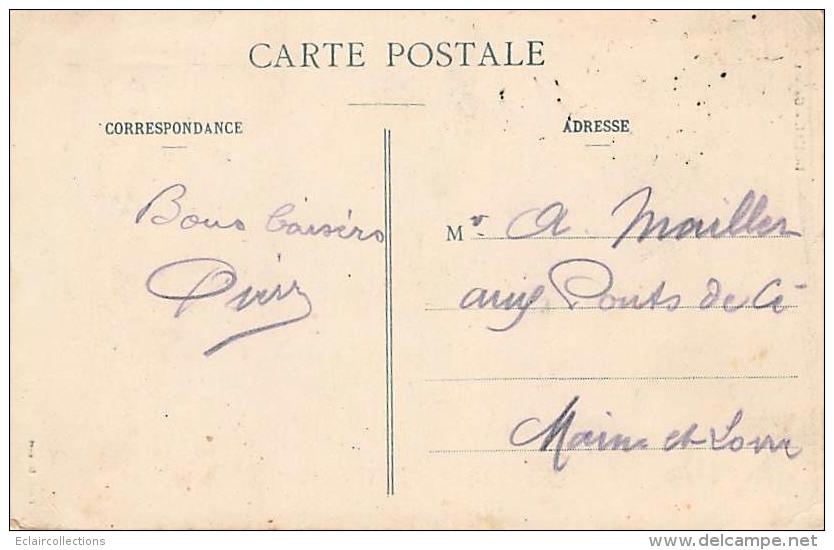 CARTE POSTALE
CORRESPONDANCE
ADRESSE
Bons baisers
Mr A. Mailler
aux Ponts de Cé
Maine et Loire
Eclaircollections
delcampe.net